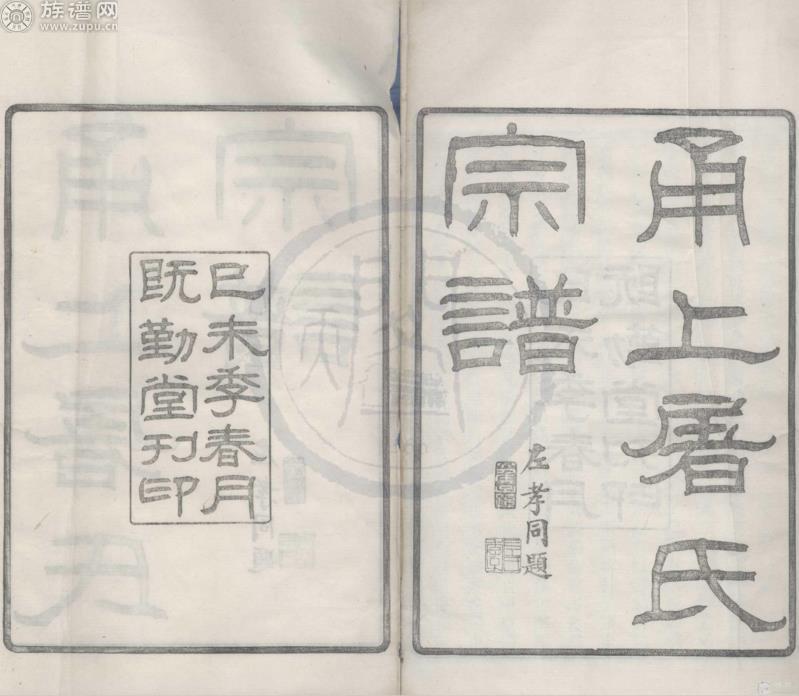 甬上屠氏
宗譜
左孝同題
己未季春月
既勤堂刊印
族谱网
www.zupu.cn